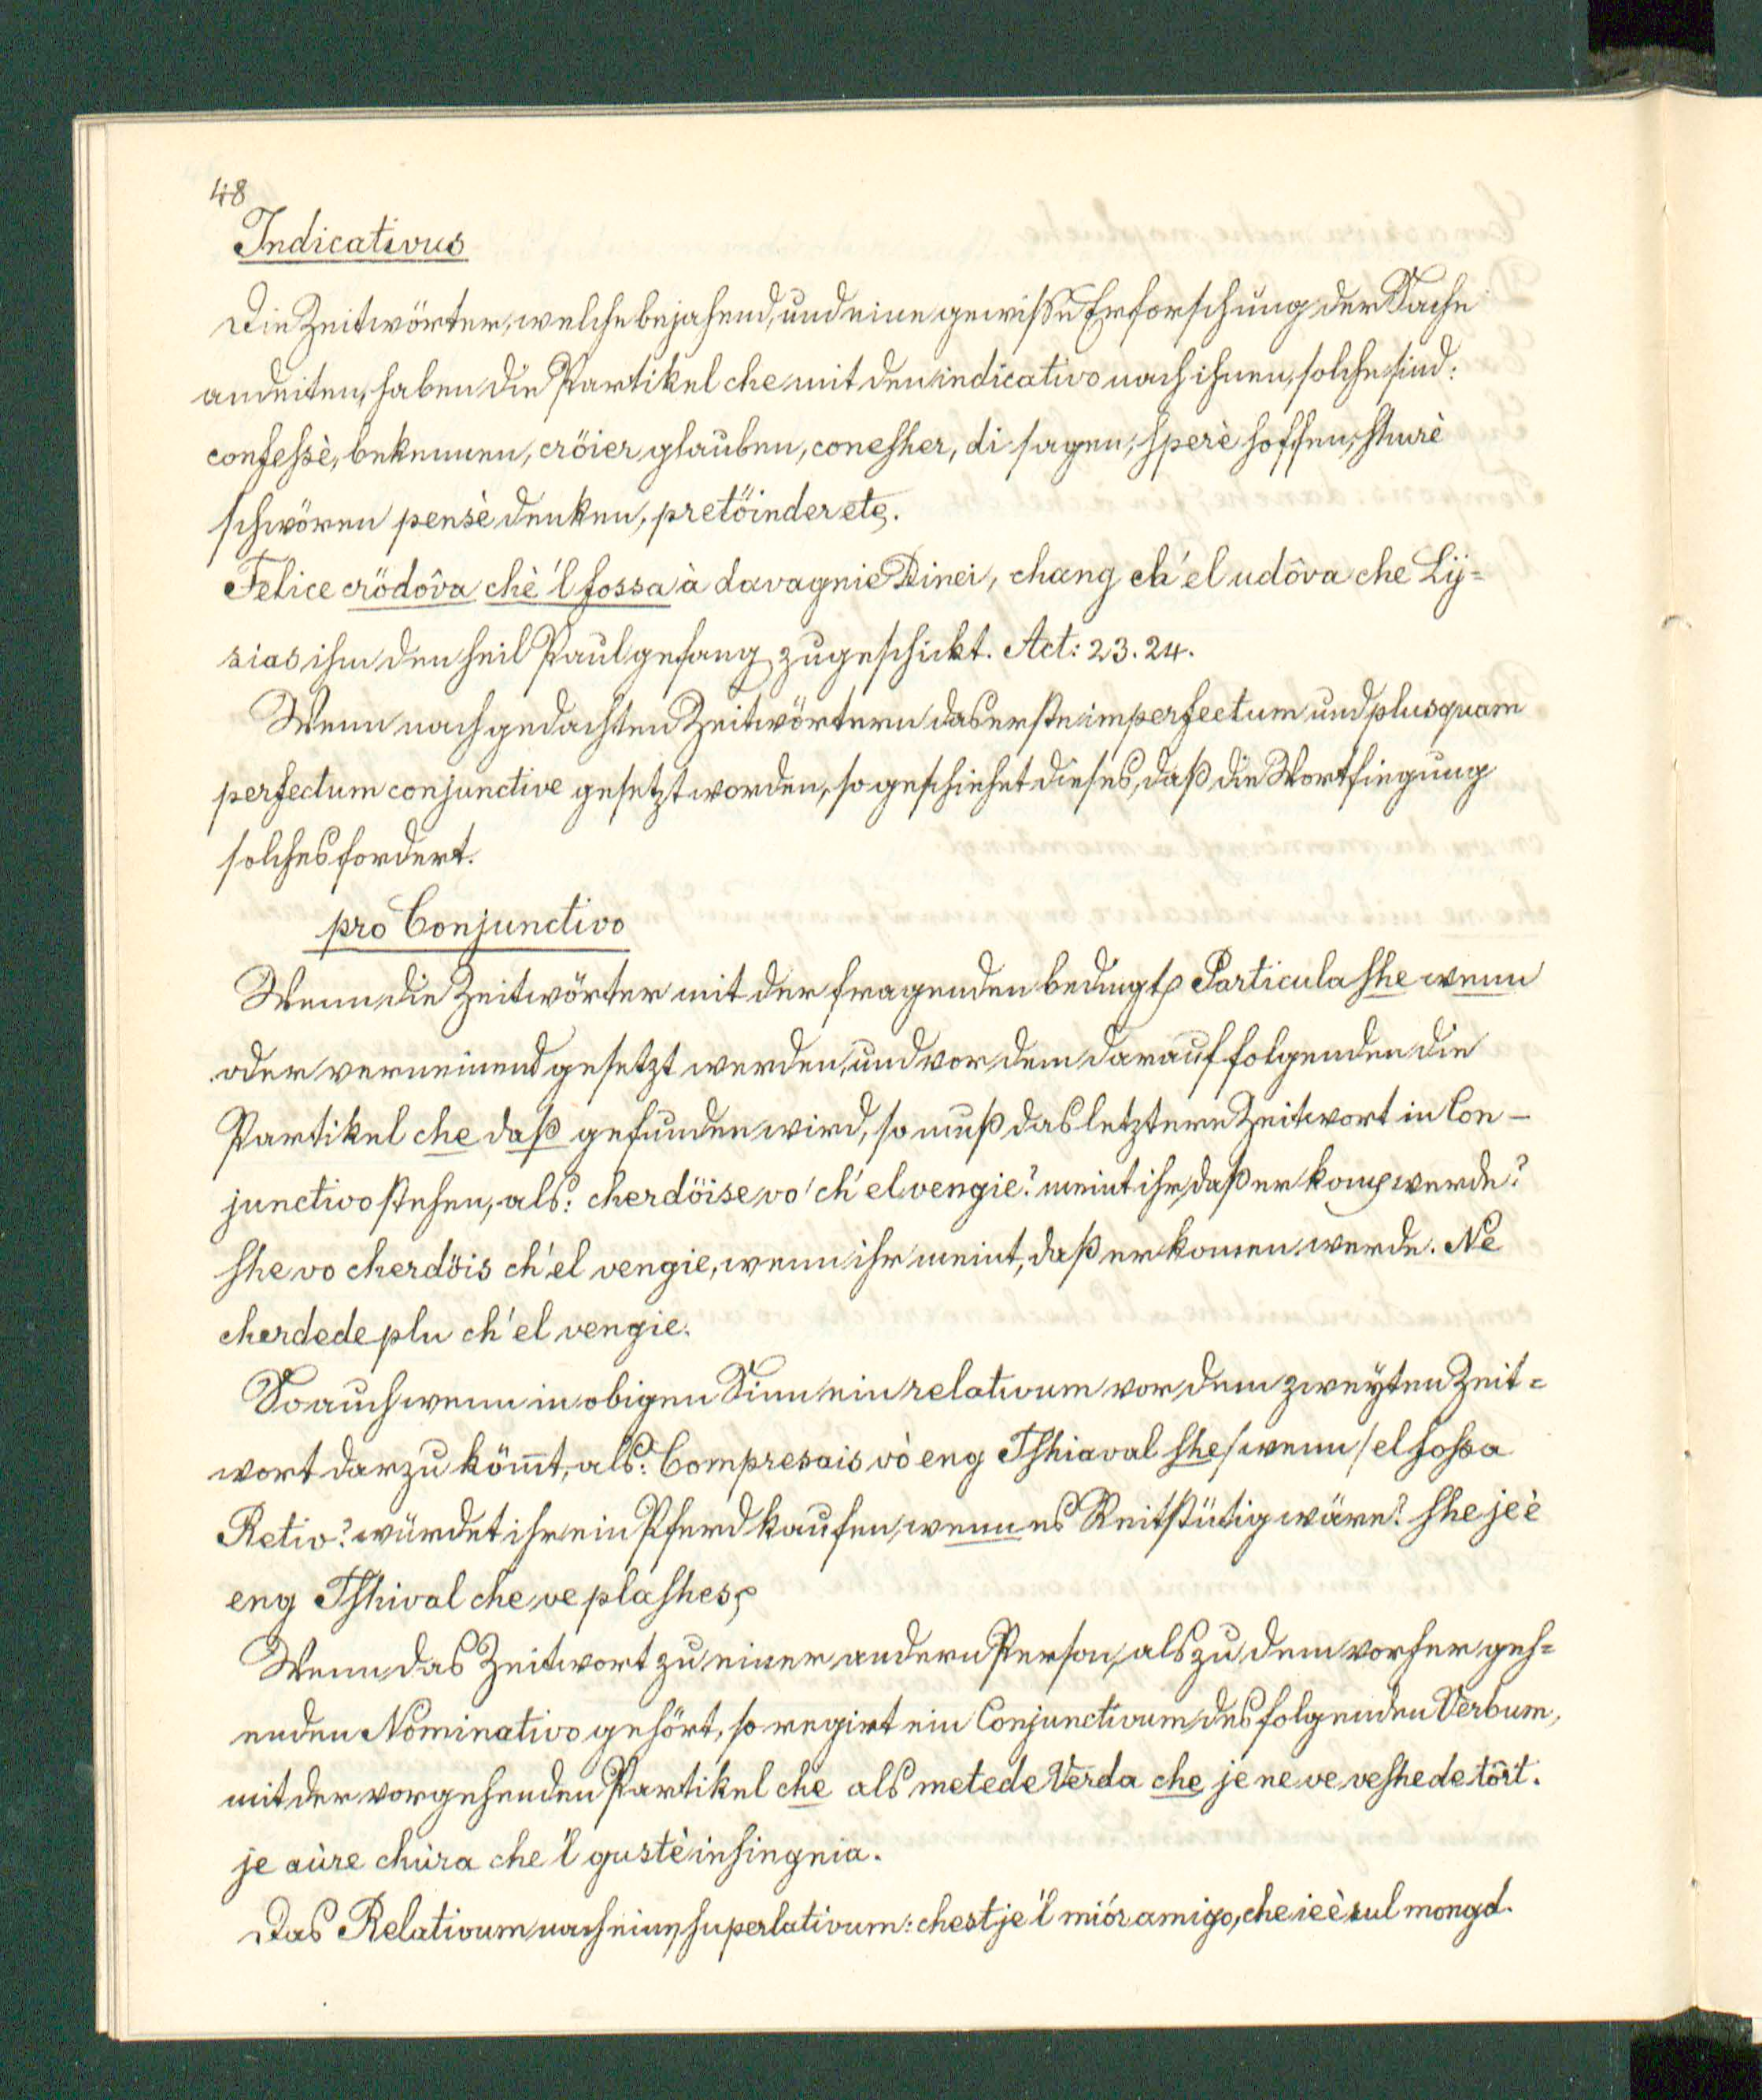 48
Indicativus
Die Zeitwörter, welche bejahend, und eine gewisse Erforschung der Sache
andeiten, haben die Partikel che mit den indicativo nach ihnen, solche sind:
confeßè, bekennen, cröier glauben, conesher, di sagen, sperè hoffen, shurè
schwören pensè denken, pretöinder etc.
Felice crödôva chè 'l fossa à davagnie Dinei, chang ch'el udôva che Lÿ=
sias ihm den heil Paul gefang zugeschickt. Act: 23. 24.
Wenn nach gedachten Zeitwörtern das erste imperfectum und plusquam
perfectum conjunctive gesetzt worden, so geschiehet dieses, daß die Wortfiegung
solches fordert.
pro Conjunctivo
Wenn die Zeitwörter mit der fragenden bedingt Particula she wenn
oder verneinend gesetzt werden, und vor dem darauf folgenden die
Partikel che daß gefunden wird, so muß das letztere Zeitwort in Con-
junctivo stehen, als: cherdöise vo' ch'el vengie? meint ihr, daß er kom werde?
she vo cherdöis ch'el vengie, wenn ihr meint, daß er komen werde. Ne
cherdede plu ch'el vengie.
So auch wenn in obigen Sinn ein relativum vor dem zweyten Zeit=
wort darzu köm̄t, als: Compresais vò eng Tshiaval she /wenn/ el foßa
Retiv? würdet ihr ein Pferd kaufen, wenn es Reitstütig wäre? she je è
eng Tshival che ve plashes
Wenn das Zeitwort zu einer andern Person, als zu dem vorher geh=
enden Nominativo gehört, so regirt ein Conjunctivum des folgenden Verbum,
mit der vorgehenden Partikel che als metede Verda che je ne ve veshede tôrt.
je aùre chùra che 'l gustè insingnia.
Das Relativum nach einem superlativum: chest je 'l miór amigo, che ie è sul mongd.